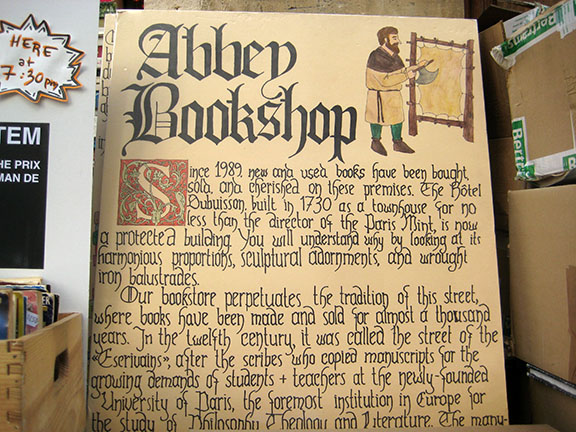 HERE
at
7:30pm
TEM
HE PRIX
MAN DE
Abbey
Bookshop
Since 1989, new and used books have been bought,
sold, and cherished on these premises. The Hôtel
Dubuisson, built in 1730 as a townhouse for no
less than the director of the Paris Mint, is now
a protected building. You will understand why by looking at its
harmonious proportions, sculptural adornments, and wrought
iron balustrades.
Our bookstore perpetuates the tradition of this street,
where books have been made and sold for almost a thousand
years. In the twelfth century, it was called the street of the
«Escrivains», after the scribes who copied manuscripts for the
growing demands of students + teachers at the newly-founded
University of Paris, the foremost institution in Europe for
the study of Philosophy Theology and Literature. The manu-
Bert